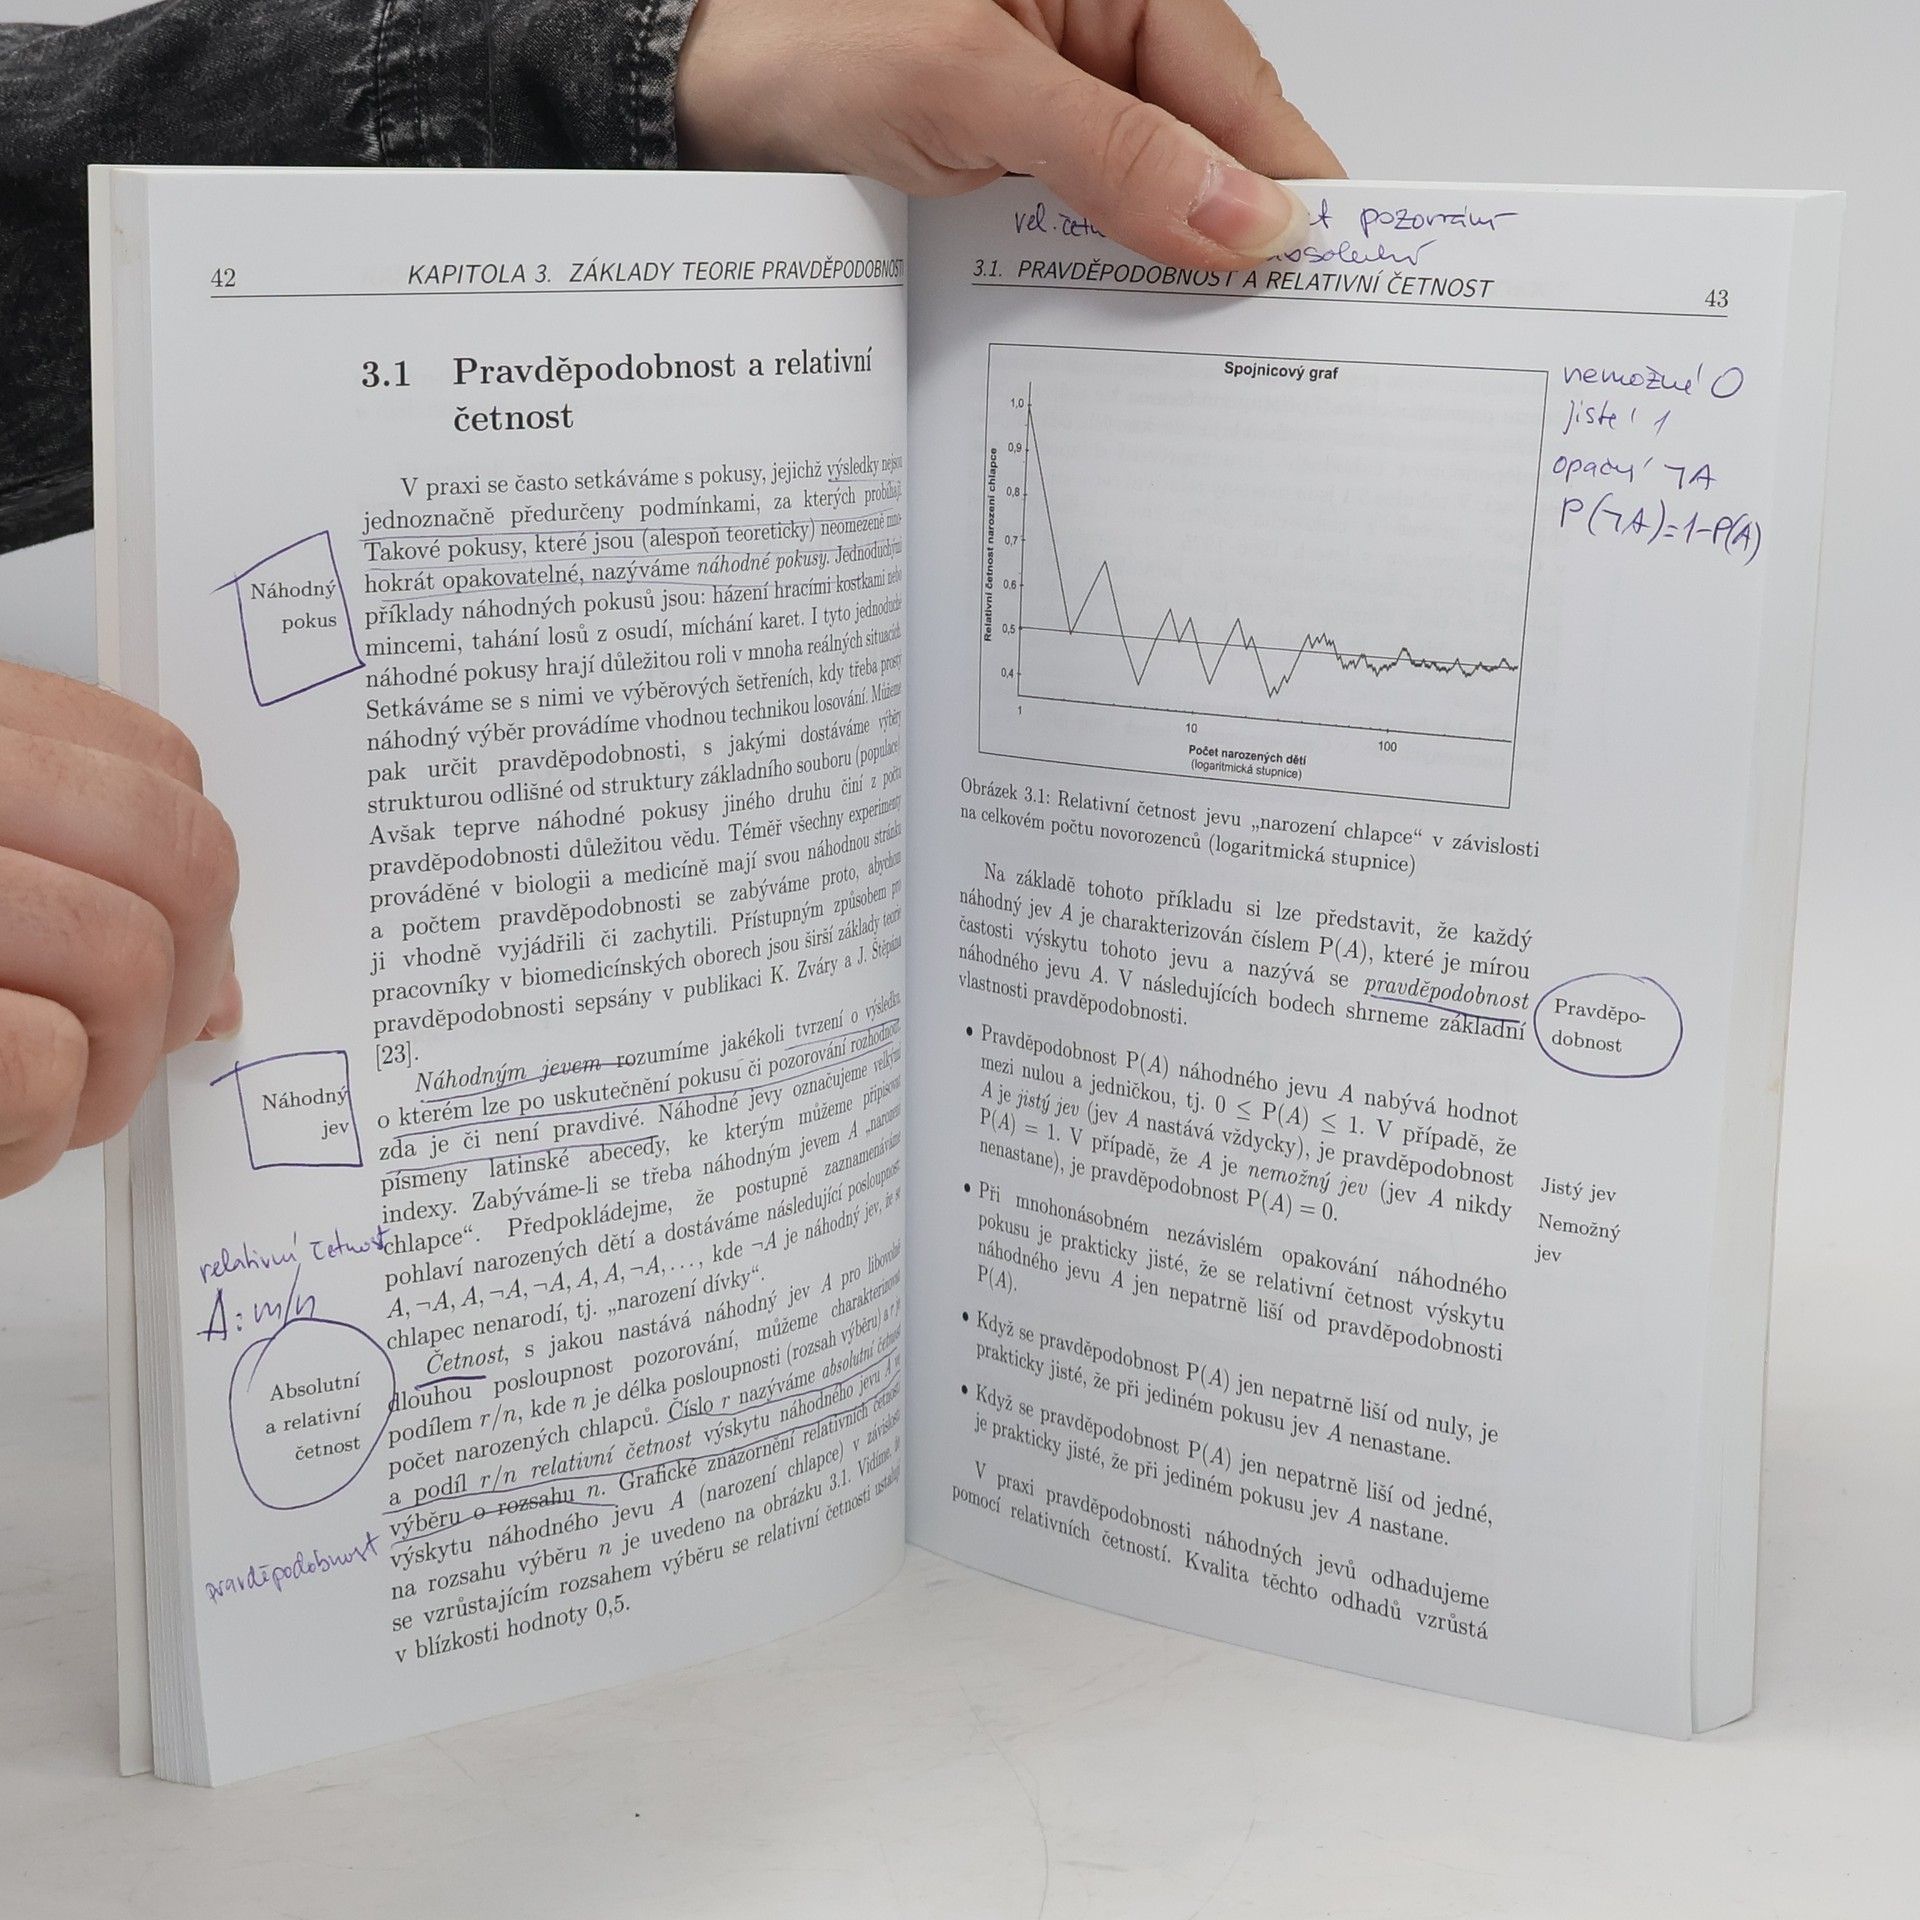 42 KAPITOLA 3. ZÁKLADY TEORIE PRAVDĚPODOBNOSTI
3.1 Pravděpodobnost a relativní
četnost
V praxi se často setkáváme s pokusy, jejichž výsledky nejsou
jednoznačně předurčeny podmínkami, za kterých probíhají.
Takové pokusy, které jsou (alespoň teoreticky) neomezeně mno-
hokrát opakovatelné, nazýváme náhodné pokusy. Jednoduchými
příklady náhodných pokusů jsou: házení hracími kostkami nebo
mincemi, tahání losů z osudí, míchání karet. I tyto jednoduché
náhodné pokusy hrají důležitou roli v mnoha reálných situacích.
Setkáváme se s nimi ve výběrových šetřeních, kdy třeba prostý
náhodný výběr provádíme vhodnou technikou losování. Můžeme
pak určit pravděpodobnosti, s jakými dostáváme výběry
strukturou odlišné od struktury základního souboru (populace).
Avšak teprve náhodné pokusy jiného druhu činí z počtu
pravděpodobnosti důležitou vědu. Téměř všechny experimenty
prováděné v biologii a medicíně mají svou náhodnou stránku
a počtem pravděpodobnosti se zabýváme proto, abychom
ji vhodně vyjádřili či zachytili. Přístupným způsobem pro
pracovníky v biomedicínských oborech jsou širší základy teorie
pravděpodobnosti sepsány v publikaci K. Zváry a J. Štěpána
[23].
Náhodný
pokus
Náhodným jevem rozumíme jakékoli tvrzení o výsledku
o kterém lze po uskutečnění pokusu či pozorování rozhodnout,
zda je či není pravdivé. Náhodné jevy označujeme velkými
písmeny latinské abecedy, ke kterým můžeme připisovat
indexy. Zabýváme-li se třeba náhodným jevem A „narození
chlapce“. Předpokládejme, že postupně zaznamenáváme
pohlaví narozených dětí a dostáváme následující posloupnost
A, ¬A, A, ¬A, ¬A, A, A, ¬A, ..., kde ¬A je náhodný jev, že se
chlapec nenarodí, tj. „narození dívky“.
Náhodný
jev
relativní četnost
A: m/n
Četnost, s jakou nastává náhodný jev A pro libovolně
dlouhou posloupnost pozorování, můžeme charakterizovat
podílem r/n, kde n je délka posloupnosti (rozsah výběru) a r je
počet narozených chlapců. Číslo r nazýváme absolutní četnost
a podíl r/n relativní četnost výskytu náhodného jevu A ve
výběru o rozsahu n. Grafické znázornění relativních četností
výskytu náhodného jevu A (narození chlapce) v závislosti
na rozsahu výběru n je uvedeno na obrázku 3.1. Vidíme, že
se vzrůstajícím rozsahem výběru se relativní četnosti ustalují
v blízkosti hodnoty 0,5.
Absolutní
a relativní
četnost
pravděpodobnost
pozorrání
absolutní
3.1. PRAVDĚPODOBNOST A RELATIVNÍ ČETNOST 43
Spojnicový graf
Relativní četnost narození chlapce
1,0
0,9
0,8
0,7
0,6
0,5
0,4
1 10 100
Počet narozených dětí
(logaritmická stupnice)
nemožné 0
jisté 1
opačný ¬A
P(¬A)=1-P(A)
Obrázek 3.1: Relativní četnost jevu „narození chlapce“ v závislosti
na celkovém počtu novorozenců (logaritmická stupnice)
Na základě tohoto příkladu si lze představit, že každý
náhodný jev A je charakterizován číslem P(A), které je mírou
častosti výskytu tohoto jevu a nazývá se pravděpodobnost
náhodného jevu A. V následujících bodech shrneme základní
vlastnosti pravděpodobnosti.
Pravděpo-
dobnost
• Pravděpodobnost P(A) náhodného jevu A nabývá hodnot
mezi nulou a jedničkou, tj. 0 ≤ P(A) ≤ 1. V případě, že
A je jistý jev (jev A nastává vždycky), je pravděpodobnost
P(A) = 1. V případě, že A je nemožný jev (jev A nikdy
nenastane), je pravděpodobnost P(A) = 0.
Jistý jev
Nemožný
jev
• Při mnohonásobném nezávislém opakování náhodného
pokusu je prakticky jisté, že se relativní četnost výskytu
náhodného jevu A jen nepatrně liší od pravděpodobnosti
P(A).
• Když se pravděpodobnost P(A) jen nepatrně liší od nuly, je
prakticky jisté, že při jediném pokusu jev A nenastane.
• Když se pravděpodobnost P(A) jen nepatrně liší od jedné,
je prakticky jisté, že při jediném pokusu jev A nastane.
V praxi pravděpodobnosti náhodných jevů odhadujeme
pomocí relativních četností. Kvalita těchto odhadů vzrůstá